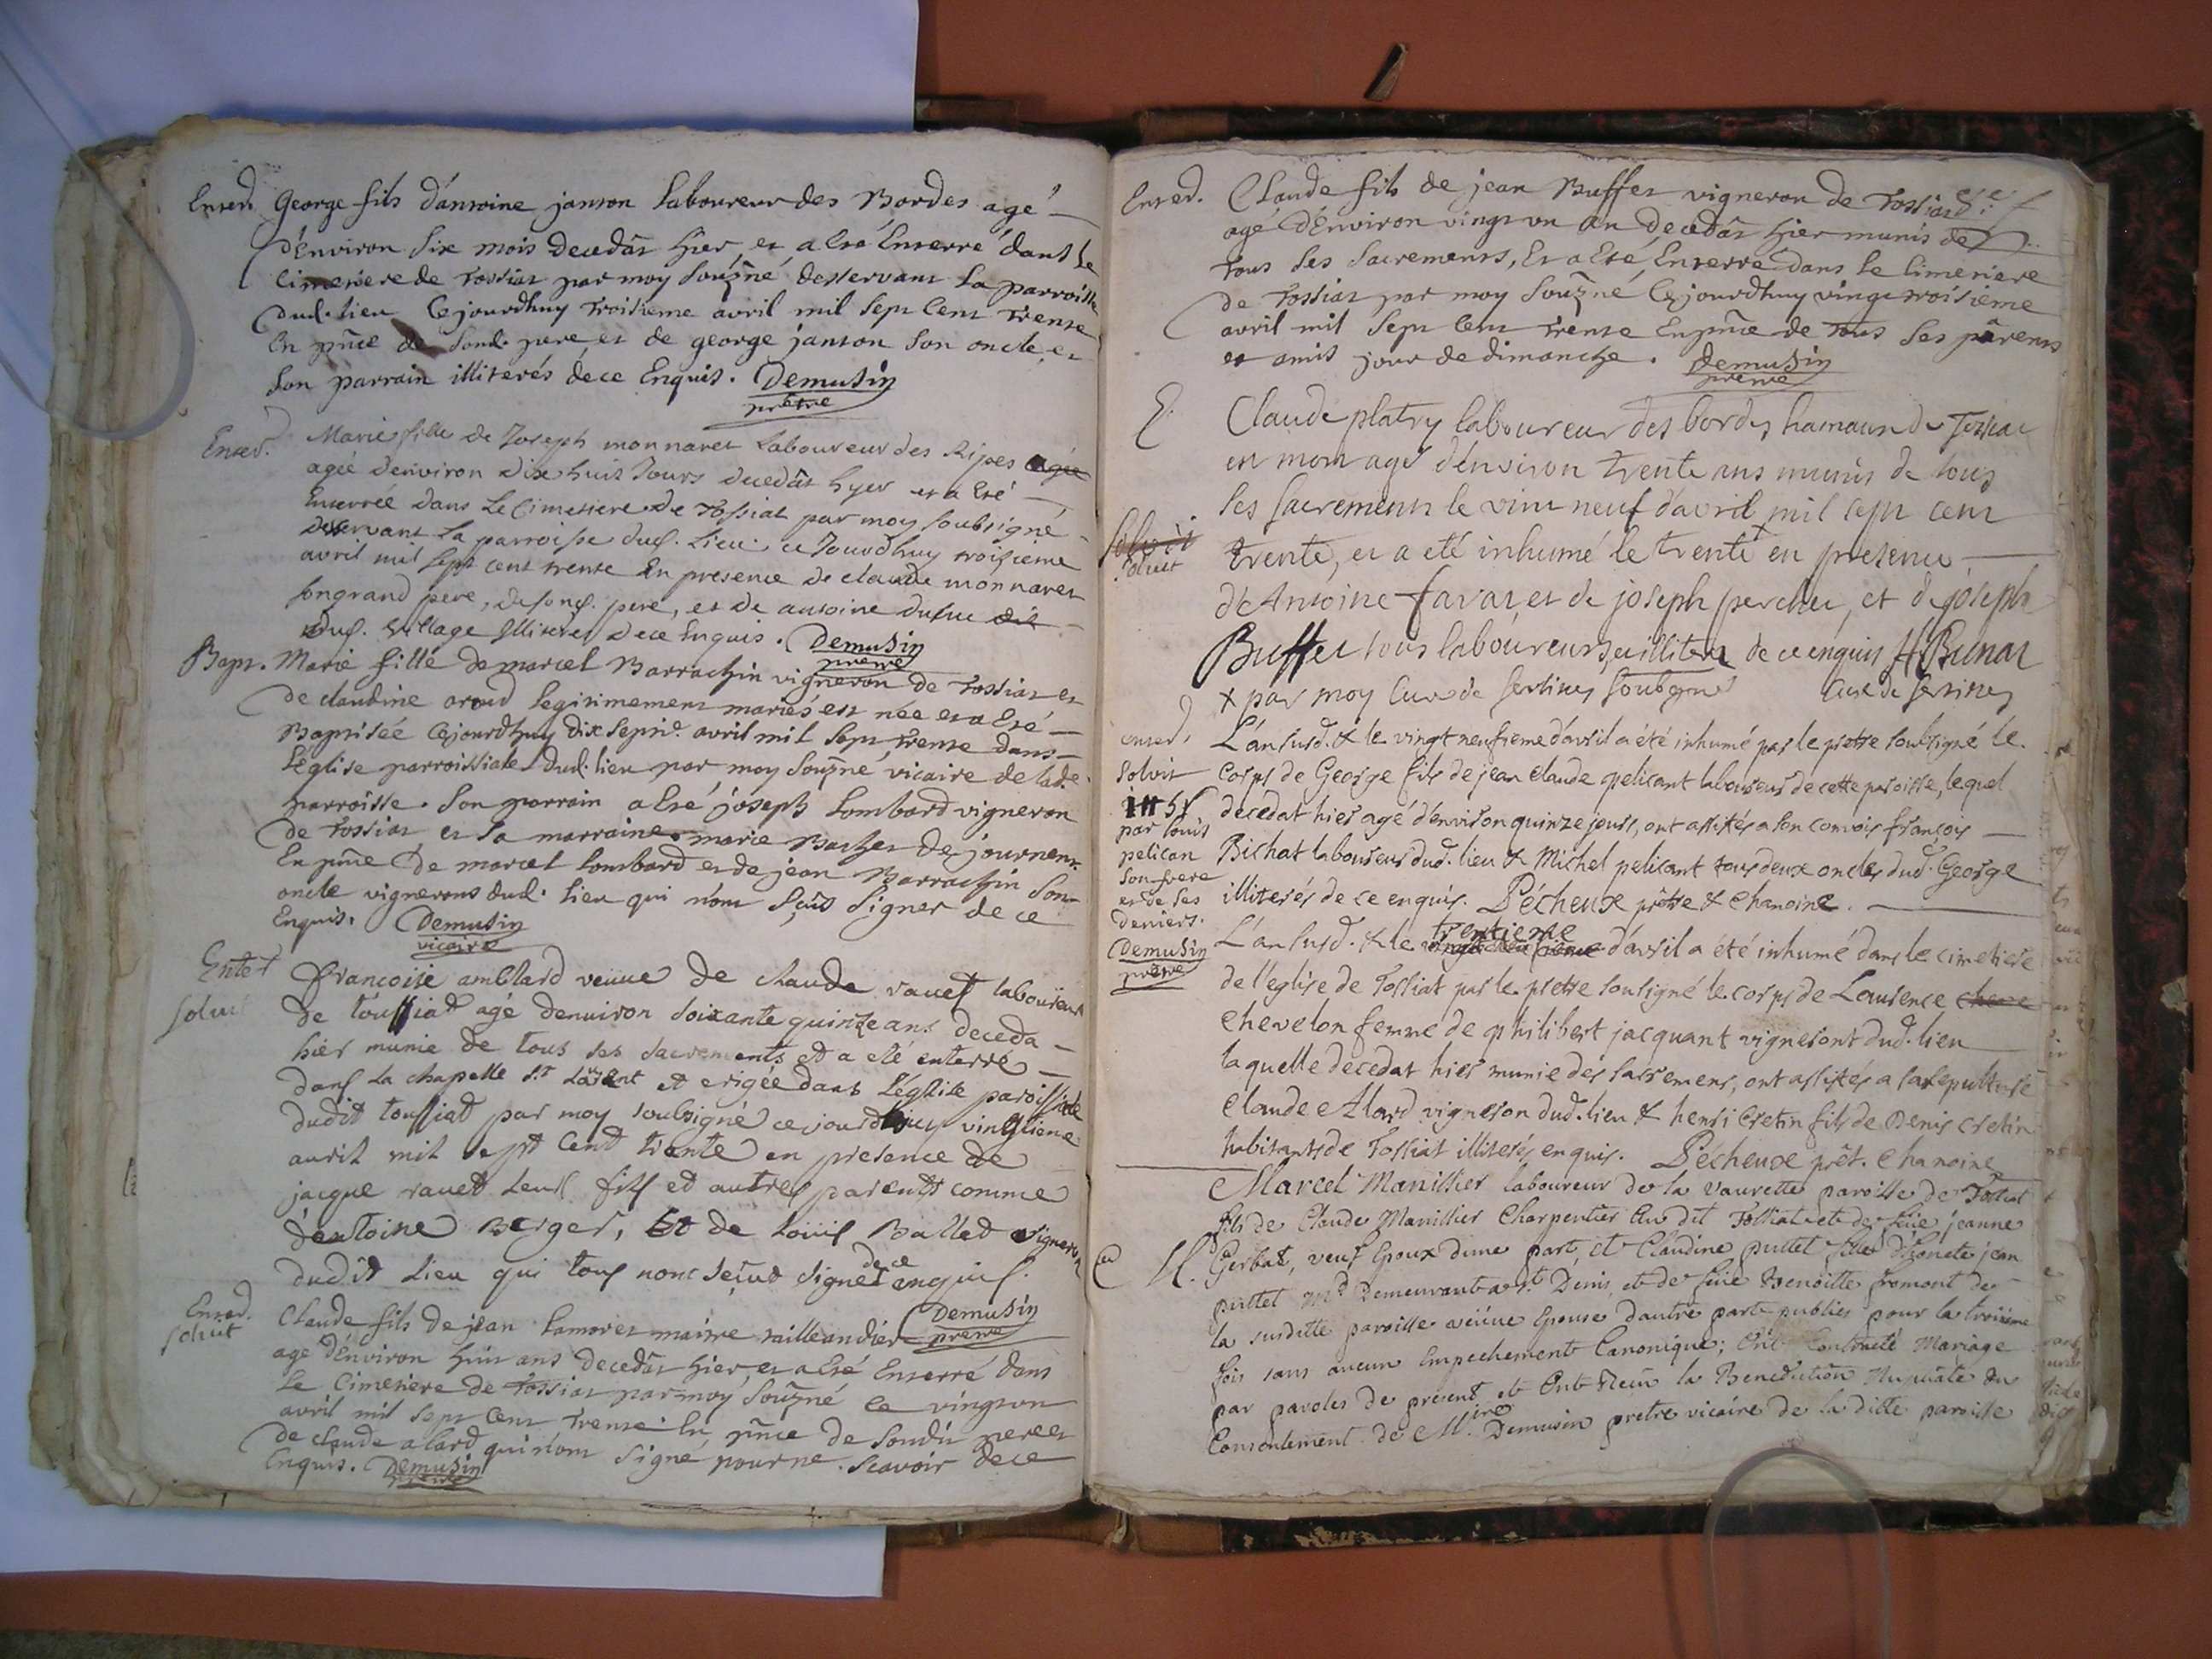 Enterr. George fils d'antoine janton laboureur des Bordes agé
d'Environ six mois decedât hier, et a Eté Enterré dans le
Cimetiere de Tossiat par moy souzñé desservant la parroisse
dud. lieu Cejourdhuy troisieme avril mil sept Cent trente
En pñce de sond. pere et de george janton son oncle et
son parrain illiterés de ce Enquis. Demusin
prêtre
Enter. Marie fille de Joseph monnaret laboureur des Ripes agée
ageé d'environ dix huit Jours decedât hyer et a Eté
Enterrée dans Le Cimetiere de Tossiat par moy soubsigné
desservant La parroisse dud. Lieu ce Jourdhuy troisieme
avril mil sept cent trente En presence de claude monnaret
son grand pere, de sond. pere, et de antoine dufuc dit
dud. village Illiterés de ce Enquis. Demusin
prêtre
Bapt. Marie fille de marcel Barrachin vigneron de Tossiat et
de claudine aroud legitimement mariés est née et a Eté
Baptiséé Cejourdhuy dix septie. avril mil sept trente dans
l'église parroissiale dud. lieu par moy souzñé vicaire de lade.
parroisse. son parrain a Eté joseph Lombard vigneron
de Tossiat et sa marraine marie Bacher de journens
En pñce de marcel Lombard et de jean Barrachin son
oncle vignerons dud. lieu qui n'ont sçus signer de ce
Enquis. Demusin
vicaire
Enter francoise amblard veuue de claude rauet laboureur
Soluit de toussiat agé denuiron soixante quinze ans deceda
hier munie de tous ses sacrements et a eté enterré
dans La chapelle St Laurent et erigée dans L'église paroissiale
dudit toussiat par moy soubsigné cejourdhuy vingtieme
auril mil sept Cent trente en presence de
jacque rauet leur fils et autres parents comme
d'antoine Berger, Et de Loüis Ballet vigneron
dudit Lieu qui tous nont seut signer de ce enquis.
Demusin
prêtre
Enterd. Claude fils de jean Lamoret maitre taillandier
soluit agé d'Environ huit ans decedât hier, et a Eté Enterré dans
le Cimetiere de Tossiat par moy souzñé le vingt un
avril mil sept Cent trente. En pñce de sondit pere et
de claude alard qui n'ont signé pour ne scavoir de ce
Enquis. Demusin
prêtre
Enterd. Claude fils de jean Buffet vigneron de Tossiat
agé d'Environ vingt un an decedât hier munis de
tous ses sacrements, Et a Eté Enterré dans le Cimetiere
de Tossiat par moy souzñé Cejourdhuy vingt troisieme
avril mil sept Cent trente En pñce de tous ses pârents
et amis jour de dimanche. Demusin
prêtre
E. Claude platry laboureur des bordes hamaux de Tossiat
en mort agé d'environ trente ans munis de tous
les sacrements le vint neuf davril mil sept cent
soluit
soluit trente, et a eté inhumé le trente x en presence
d'Antoine favaret de joseph perchet, et de joseph
Buffet tous laboureurs illiteres de ce enquis H Bunat
x par moy Curé de sertines soubsigné Curé de sertines
enterd. L'an susd. & le vingt neufieme d'avril a été inhumé par le prêtre soubsigné le
solvit corps de George fils de jean claude pelicant laboureur de cette paroisse, lequel
decédat hier agé d'environ quinze jours, ont assistés a son convois françois
par louis
pelican Bichat laboureur dud. lieu & Michel pelicant tous deux oncles dud. George
son frere
et de ses illiterés de ce enquis. Pécheux prêtre & Chanoine.
deniers.
Demusin
prêtre
L'an susd. & le vingt neufieme trentieme d'avril a été inhumé dans le cimetiere
de l'eglise de Tossiat par le prêtre sousigné le corps de Laurence
chevelon femme de philibert jacquant vigneront dud. lieu
laquelle decedat hier munie des sacremens, ont assistés a sa sepulture
Claude Allard vigneron dud. lieu & henri Cretin fils de Denis cretin
habitants de Tossiat illiterés enquis. Pécheux prêt. Chanoine
Marcel Manillier laboureur de la vaurette paroisse de Tossiat
fils de Claude Manillier Charpentier du dit Tossiat et de feüe jeanne
M. Gerbat, veuf Epoux dune part, et Claudine puttet fille d'honete jean
puttet md. Demeurant a St. Denis, et de feüe Benoitte fromont de
la susditte paroisse veüue Epouse d'autre part publiés pour la troisieme
fois sans aucun Empechement Canonique; Ont Contracté Mariage
par paroles de présent et Ont Receu la Benediction Nuptiale du
Consentement de Mire Demusin pretre vicaire de la ditte paroisse